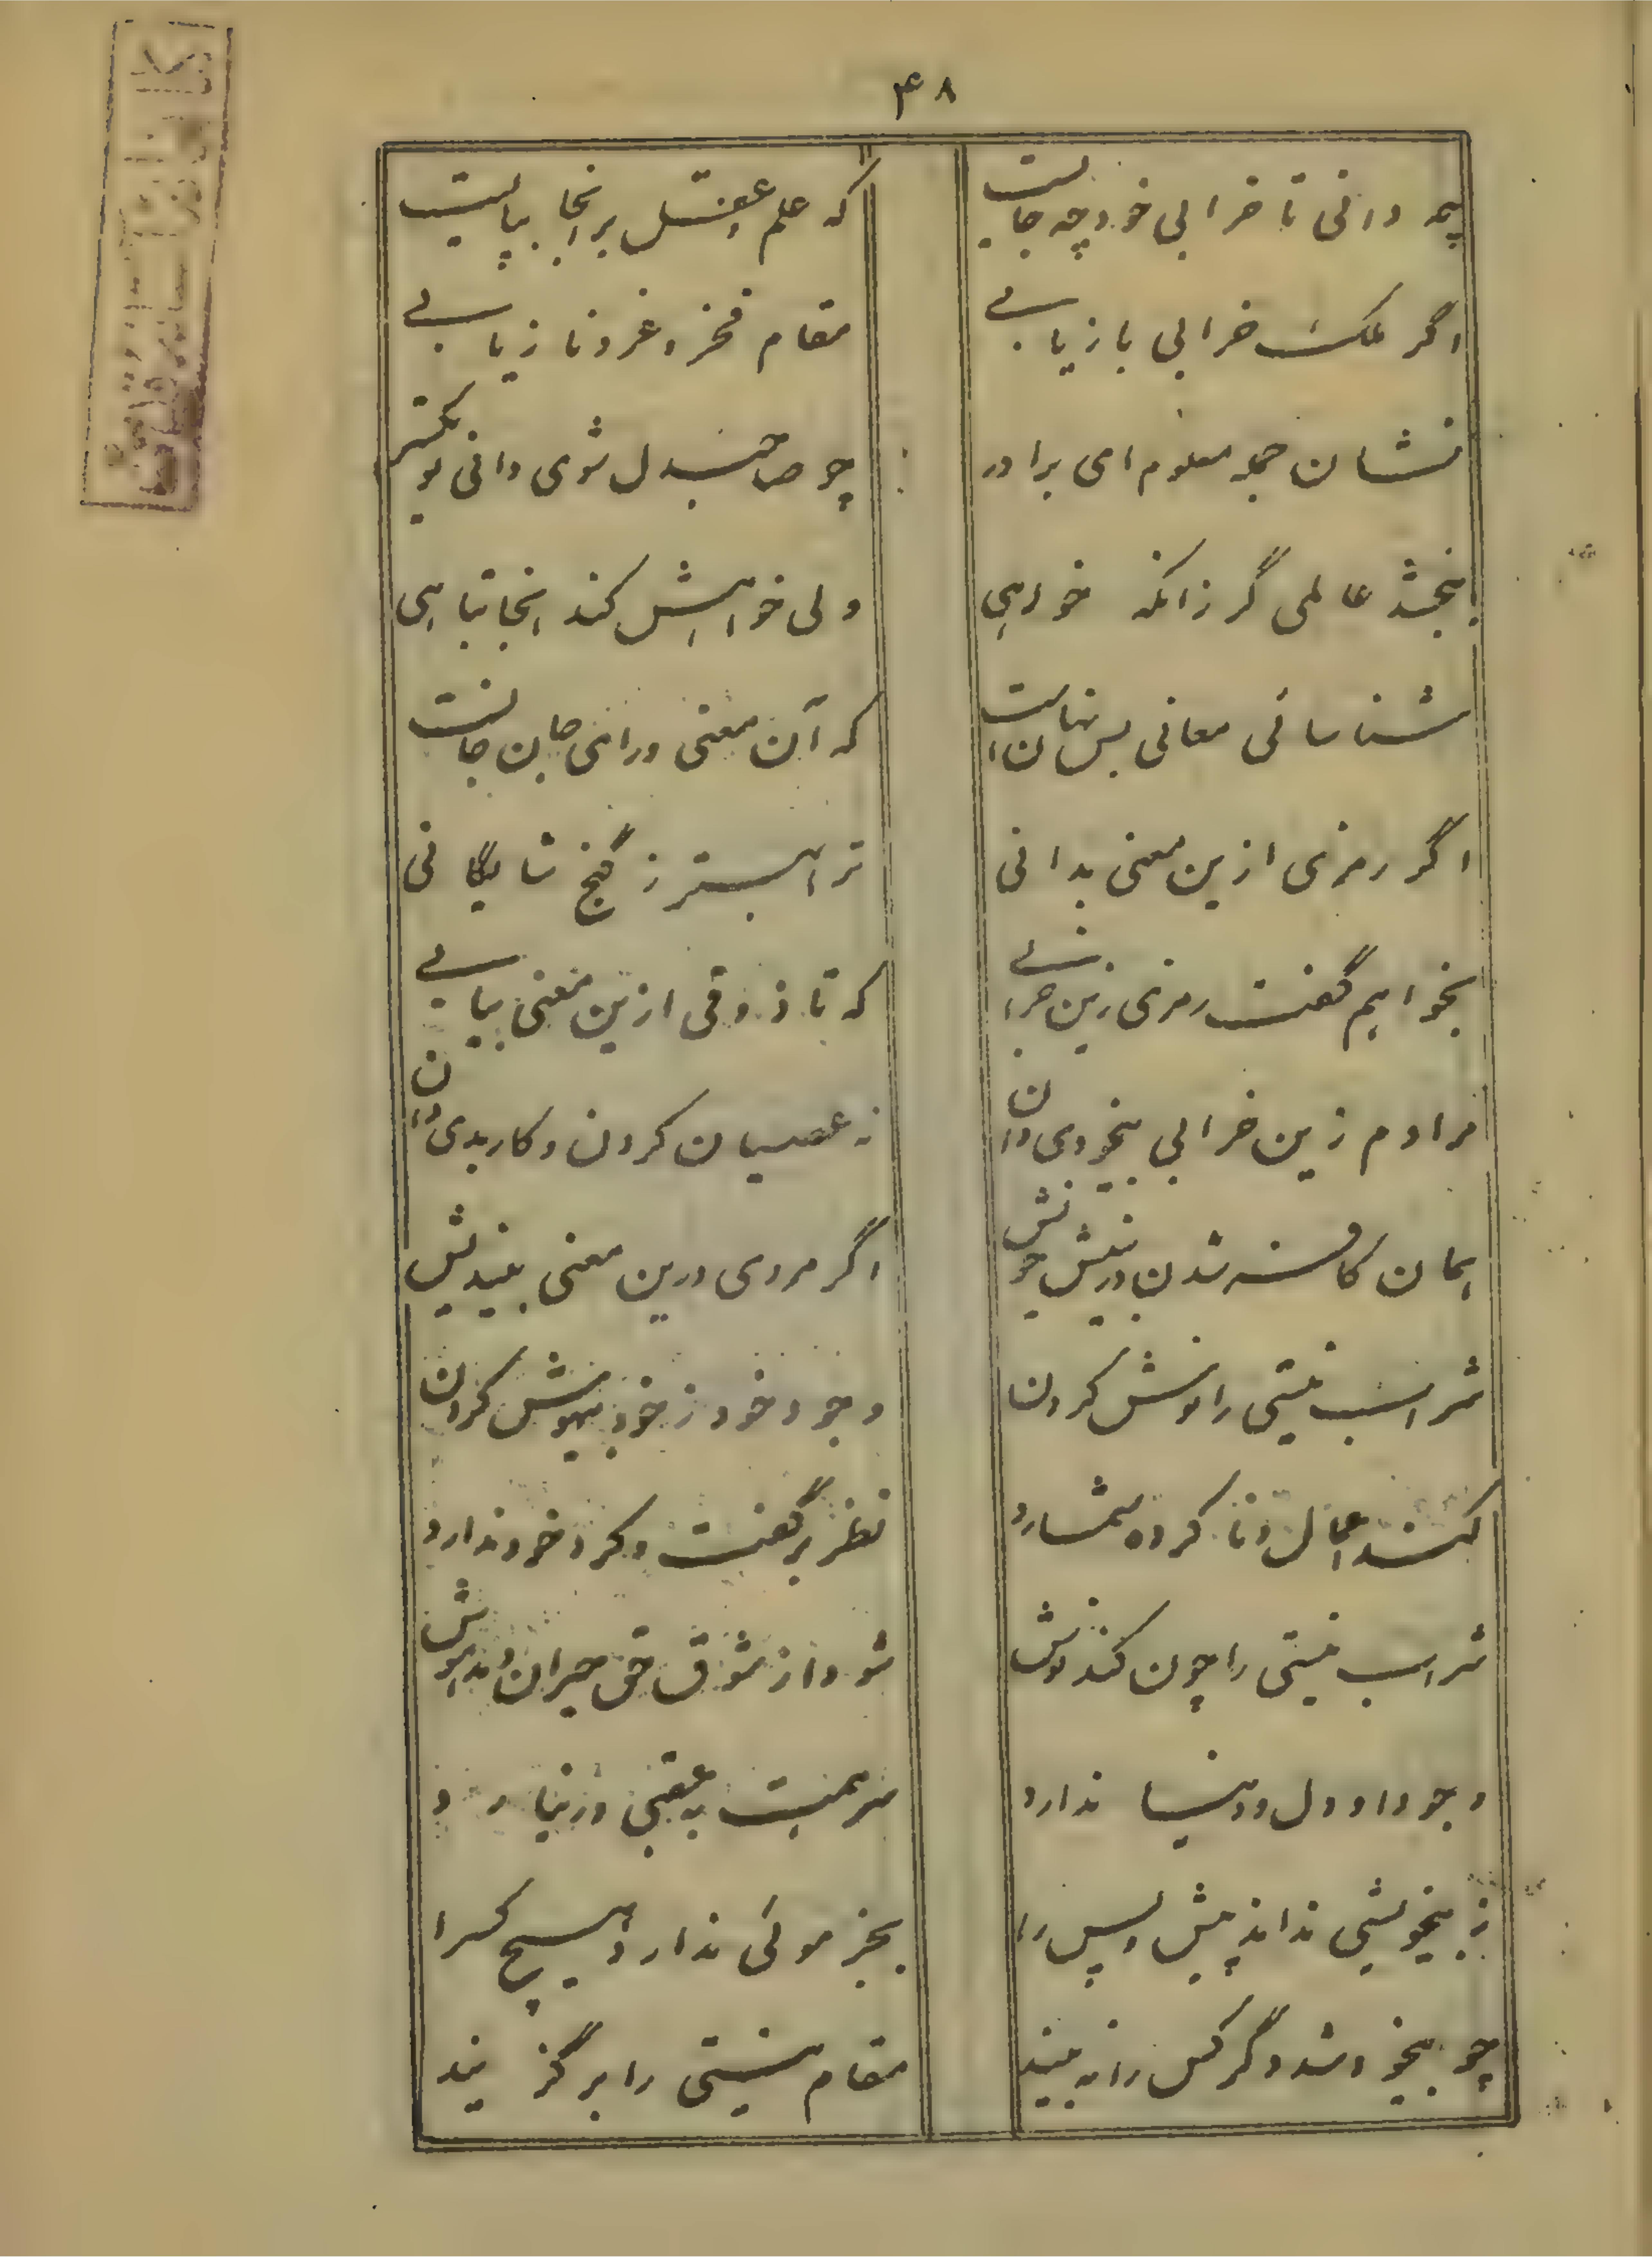 ۴۸
چه دانی تا خرابی خود چه جایست که علم و عقل بر انجا بپایست
اگر ملک خرابی بازیابی مقام فخر و عز و ناز یابی
نشان جمله معلوم ای برادر چو صاحبدل شوی دانی تو یکسر
ببخشد عالمی گر زانکه خواهی ولی خواهش کند انجا تباهی
شناسائی معانی بس نهانست که آن معنی ورای جان جانست
اگر رمزی ازین معنی بدانی ترا بهتر ز گنج شایگانی
بخواهم گفت رمزی زین خرابی که تا ذوقی ازین معنی بیابی
مرادم زین خرابی بیخودی دان نه عصیان کردن و کار بدی دان
همان کافر شدن در نیش خویش اگر مردی درین معنی بیندیش
شراب نیستی را نوش کردن وجود خود ز خود بیهوش کردن
کند اعمال و نا کرده شمارد نظر بر گفت و کرد خود ندارد
شراب نیستی را چون کند نوش شود از شوق حق حیران و مدهوش
وجود او دل و دنیا ندارد سر همت به عقبی در نیارد
ز بیخویشی نداند پیش و پس را بجز مولی ندارد هیچ کس را
چو بیخود شد دگر کس را نه بیند مقام نیستی را بر گزیند